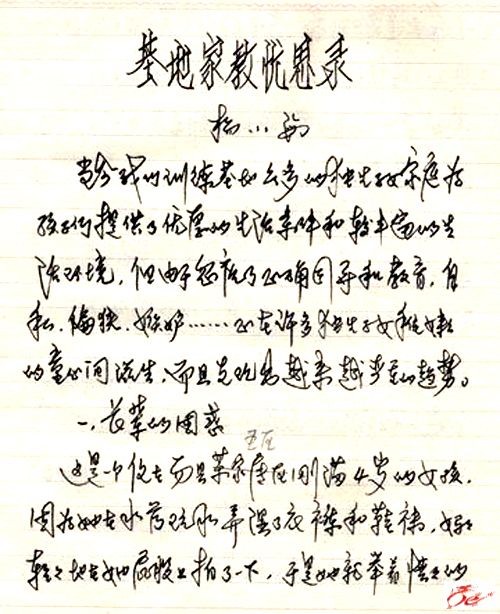 基地家教忧思录
杨小
当今我们训练基地众多的独生子女家庭为
孩子们提供了优厚的生活条件和较丰富的生
活环境，但由于忽视了正确引导和教育，自
私、偏狭、嫉妒……正在许多独生子女稚嫩
的童心间滋生，而且先现出越来越严重的趋势。
一、长辈的困惑
这是一个 家属区刚满4岁的女孩，
因为她在水 玩水弄湿了衣裤和鞋袜，妈妈
轻轻地在她屁股上拍了一下，于是她就举着 的